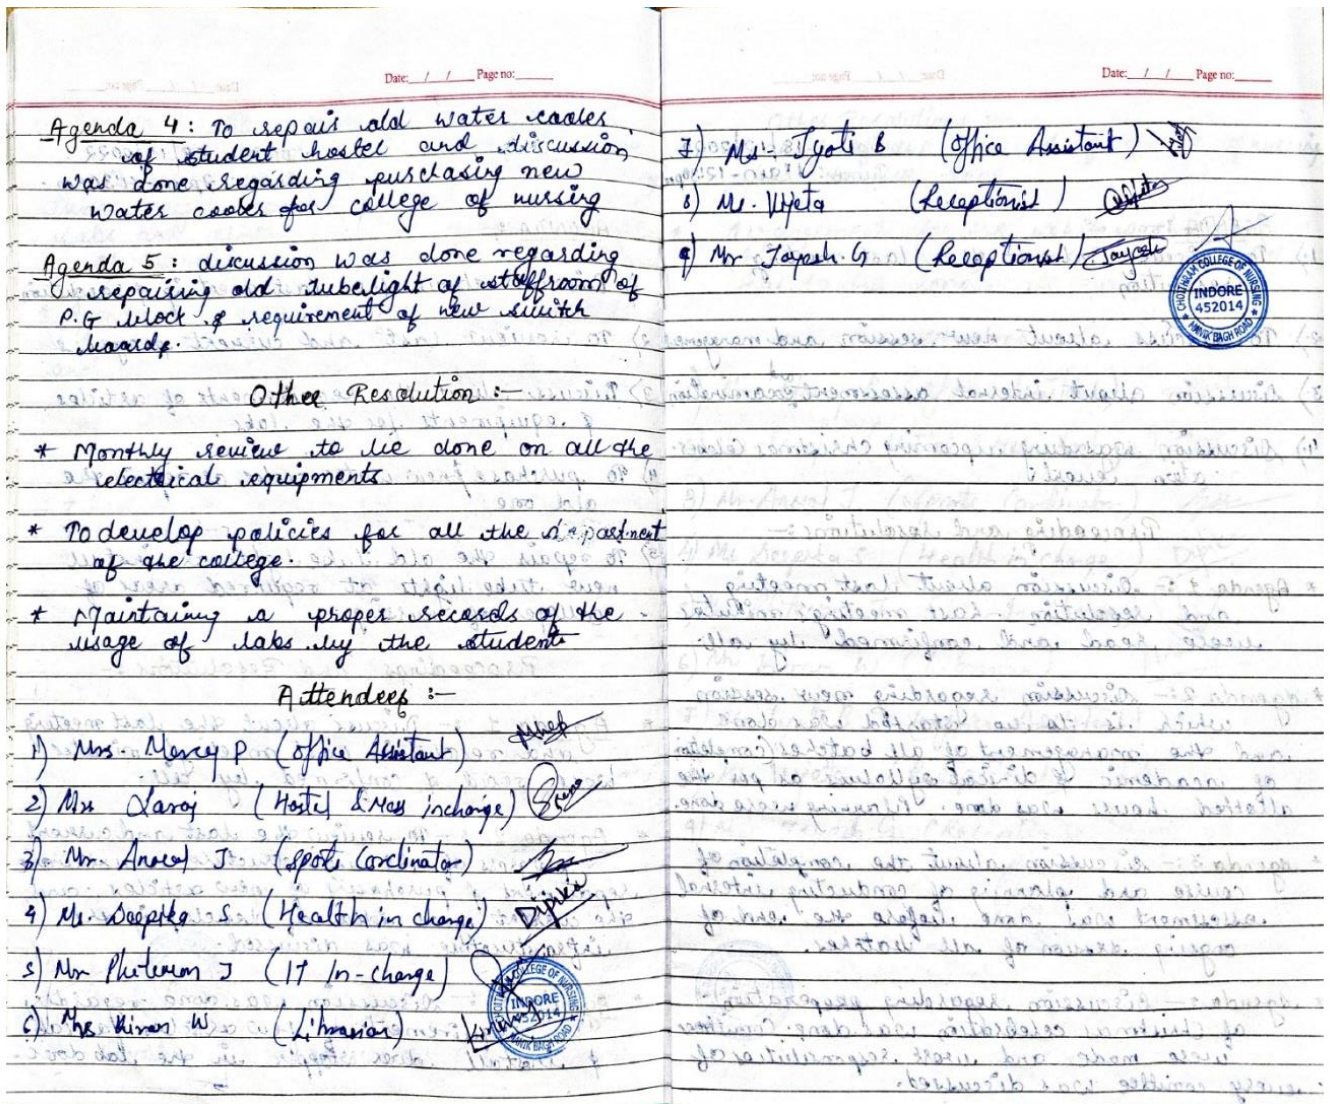 Date: / / Page no:
Agenda 4 : To repair old water cooler
of student hostel and discussion
was done regarding purchasing new
water cooler for college of nursing
Agenda 5 : discussion was done regarding
repairing old tubelight of staffroom of
P.G block & requirement of new switch
boards.
Other Resolution :-
* Monthly review to be done on all the
electrical equipments
* To develop policies for all the department
of the college.
* Maintaining a proper records of the
usage of labs by the students
Attendees :-
1) Mrs. Mercy P (Office Assistant)
2) Mrs Saroj (Hostel & Mess incharge)
3) Mr J (Sports Cordinator)
4) Ms. Deepika S. (Health in charge) Dipika
5) Mr J (IT In-charge)
6) Mrs Kiran W (Librarian) Kiran
CHOITHRAM COLLEGE OF NURSING
INDORE
452014
MANIK BAGH ROAD
Date: / / Page no:
7) Ms. Jyoti B (Office Assistant)
8) Ms. Vijeta (Receptionist)
9) Mr Jayesh. G (Receptionist) Jayesh
CHOITHRAM COLLEGE OF NURSING
INDORE
452014
MANIK BAGH ROAD